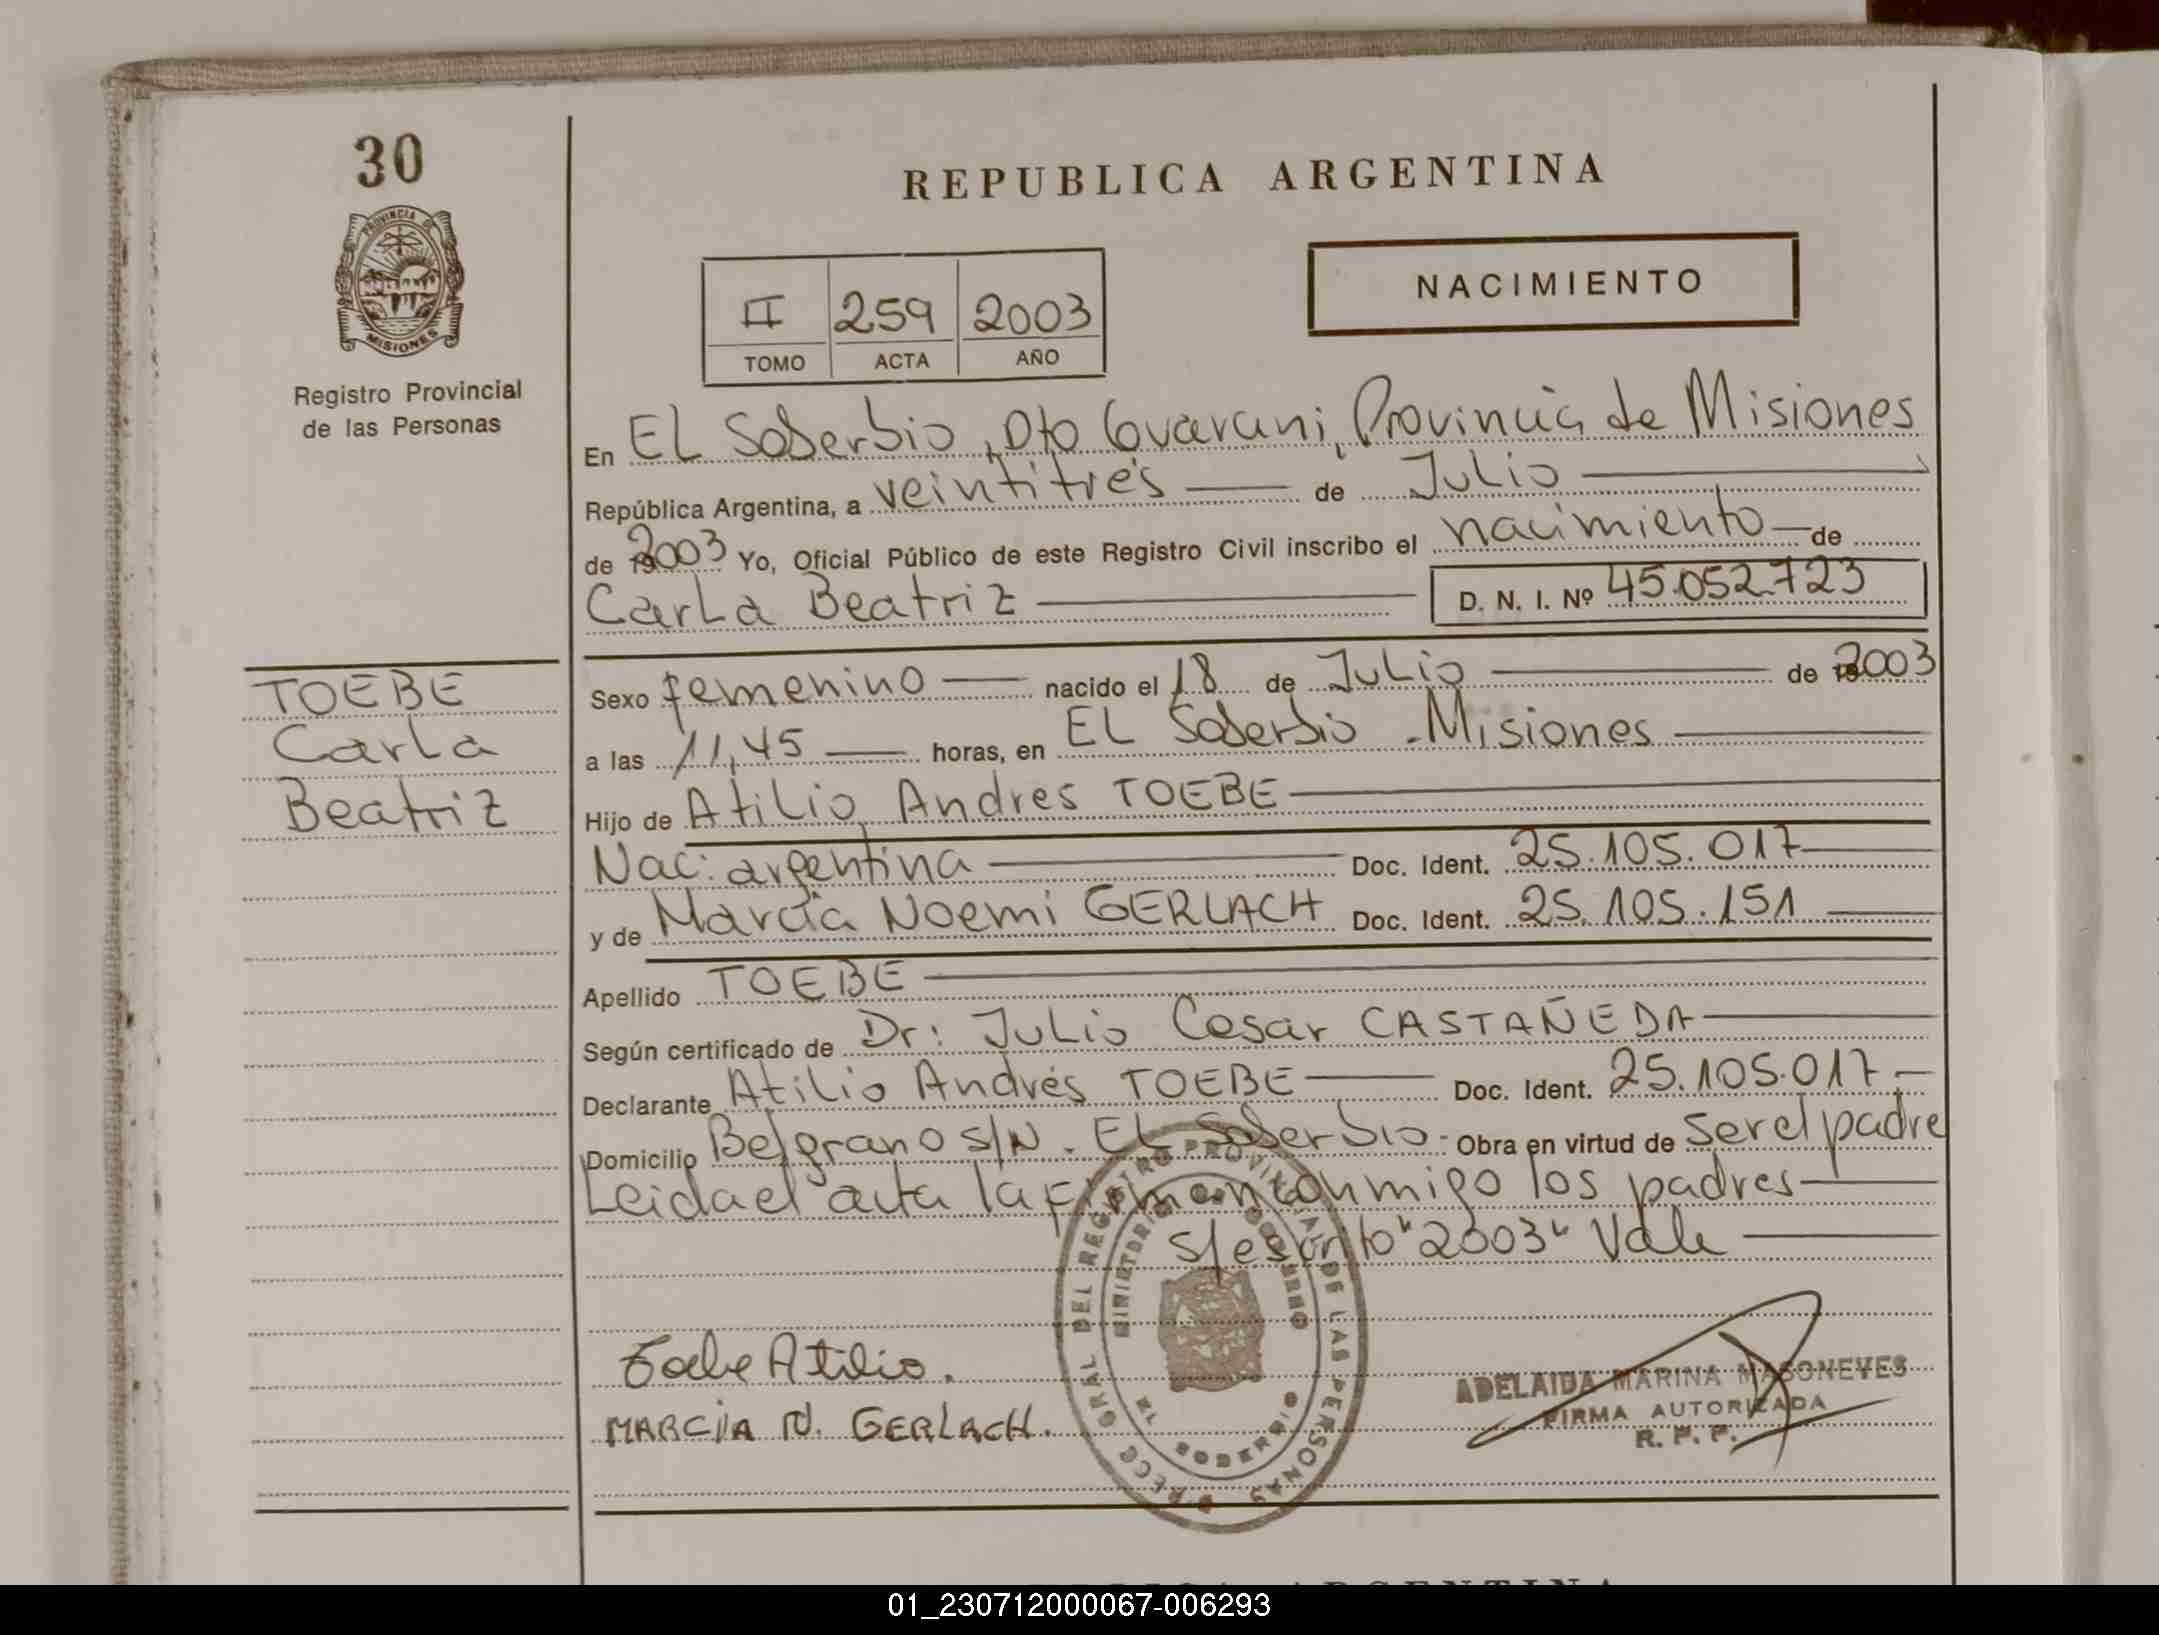 30
PROVINCIA DE
MISIONES
Registro Provincial
de las Personas
REPUBLICA ARGENTINA
II 259 2003
TOMO ACTA AÑO
NACIMIENTO
En EL Soberbio, Dto Guarani, Provincia de Misiones
República Argentina, a veintitrés de Julio
de 2003 Yo, Oficial Público de este Registro Civil inscribo el nacimiento de
Carla Beatriz D. N. I. Nº 45.052.723
TOEBE
Carla
Beatriz
Sexo femenino nacido el 18 de Julio de 2003
a las 11,45 horas, en EL Soberbio - Misiones
Hijo de Atilio Andres TOEBE
Nac: argentina Doc. Ident. 25.105.017
y de Marcia Noemi GERLACH Doc. Ident. 25.105.151
Apellido TOEBE
Según certificado de Dr: Julio Cesar CASTAÑEDA
Declarante Atilio Andrés TOEBE Doc. Ident. 25.105.017
Domicilio Belgrano S/N. EL Soberbio. Obra en virtud de ser el padre
Leida el acta la firman conmigo los padres
s/escrito "2003" Vale
Toebe Atilio.
MARCIA N. GERLACH.
DIRECC GRAL DEL REGISTRO PROVINCIAL DE LAS PERSONAS
MINISTERIO GOBIERNO
SOBERBIO
ADELAIDA MARINA MASONEVES
FIRMA AUTORIZADA
R. P. P.
01_230712000067-006293